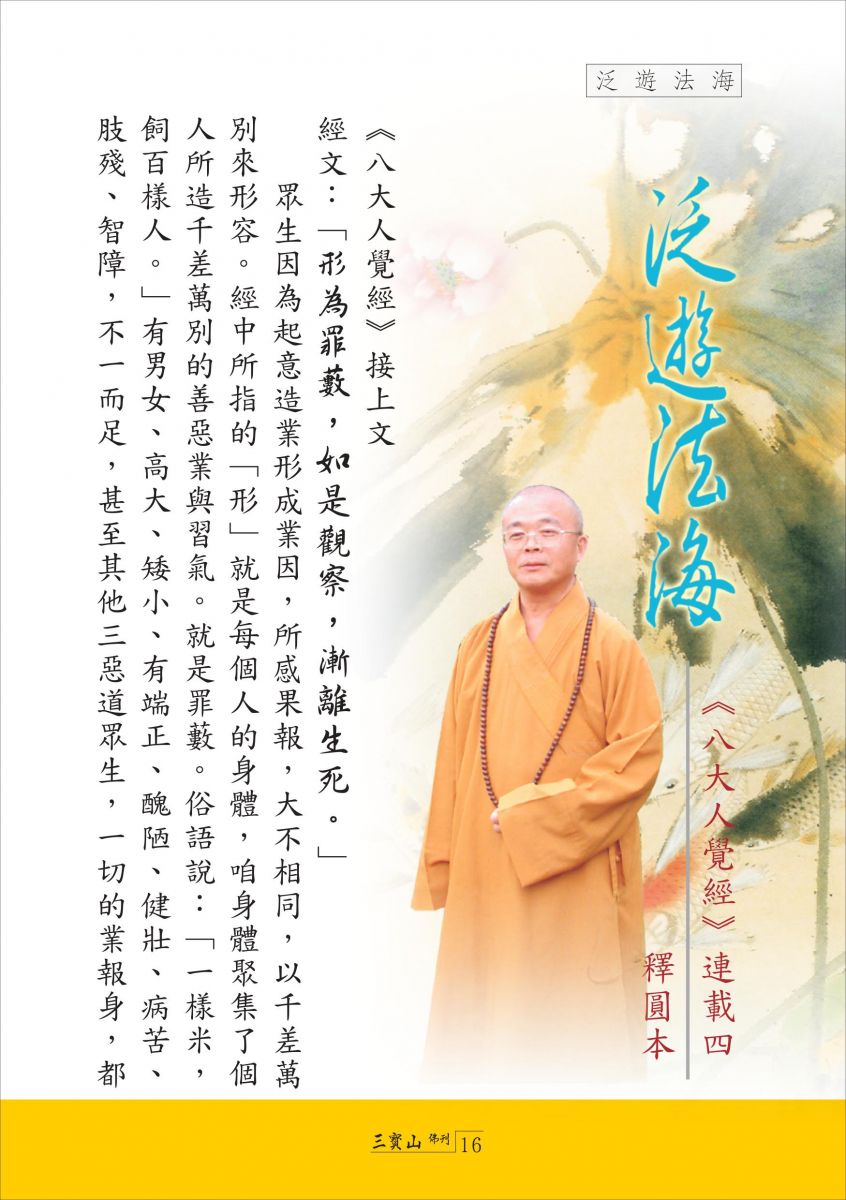 泛遊法海
泛遊法海
《八大人覺經》連載四
釋圓本
《八大人覺經》接上文
經文：「形為罪藪，如是觀察，漸離生死。」
眾生因為起意造業形成業因，所感果報，大不相同，以千差萬
別來形容。經中所指的「形」就是每個人的身體，咱身體聚集了個
人所造千差萬別的善惡業與習氣。就是罪藪。俗語說：「一樣米，
飼百樣人。」有男女、高大、矮小、有端正、醜陋、健壯、病苦、
肢殘、智障，不一而足，甚至其他三惡道眾生，一切的業報身，都
三寶山 佛刊 16